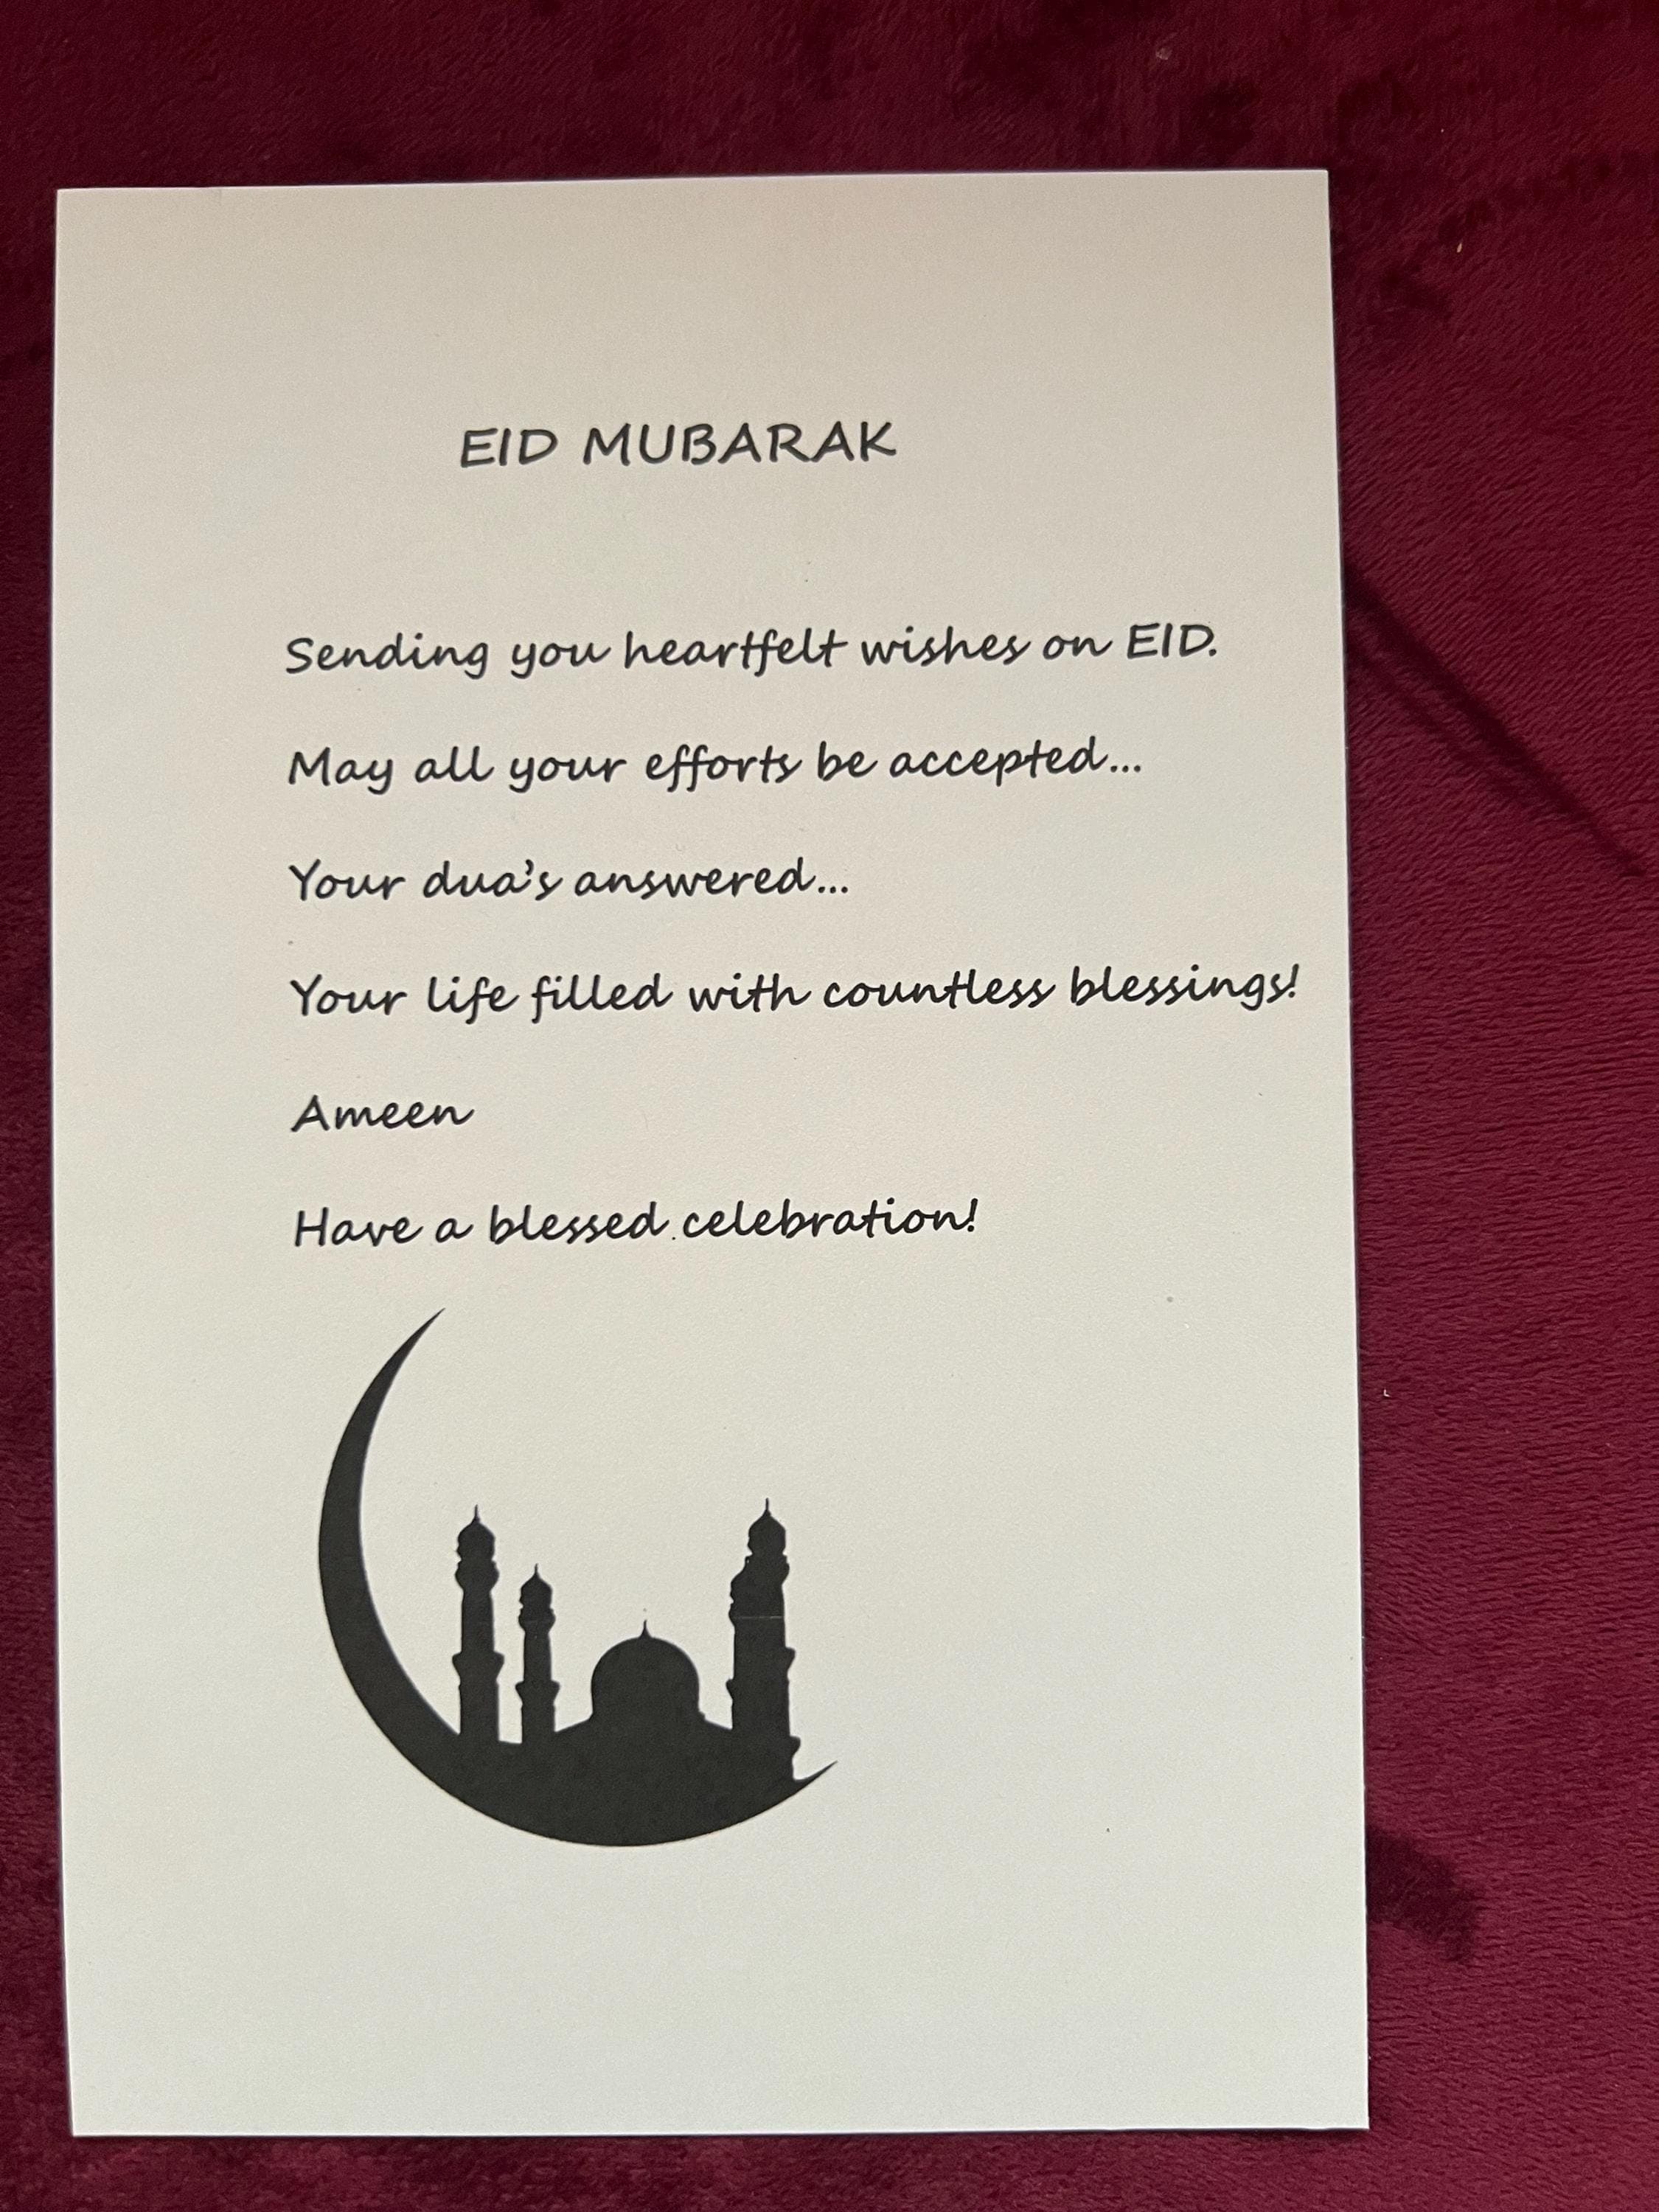 EID MUBARAK
Sending you heartfelt wishes on EID.
May all your efforts be accepted...
Your dua's answered...
Your life filled with countless blessings!
Ameen
Have a blessed celebration!